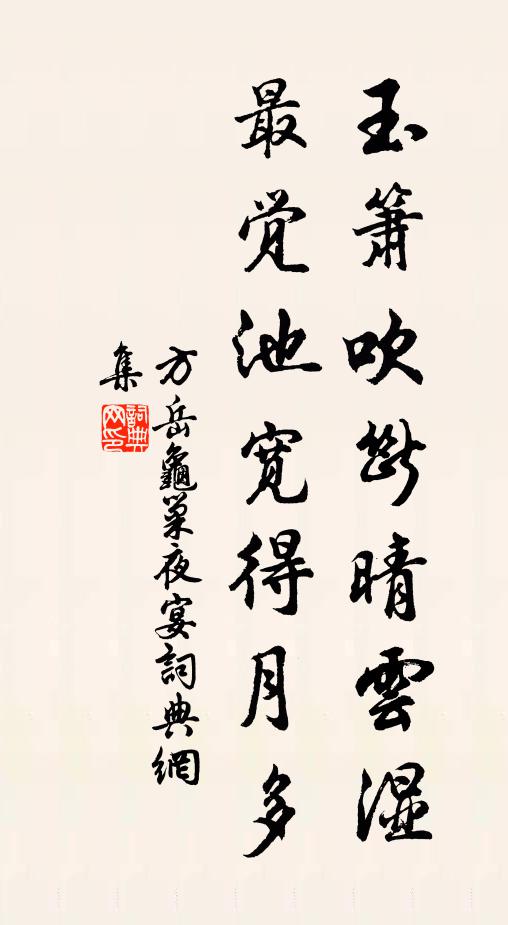 玉箫吹断晴雲湿
最觉池宽得月多
方岳龜巢夜宴詞典網
集
詞典
网印